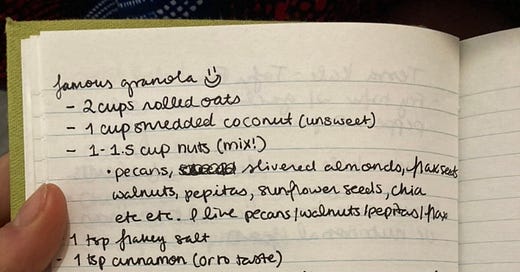 famous granola
- 2 cups rolled oats
- 1 cup shredded coconut (unsweet)
- 1-1.5 cup nuts (mix!)
• pecans, slivered almonds, flax seeds
walnuts, pepitas, sunflower seeds, chia
etc etc. I like pecans/walnuts/pepitas/flax
- 1 tsp flakey salt
- 1 tsp cinnamon (or to taste)